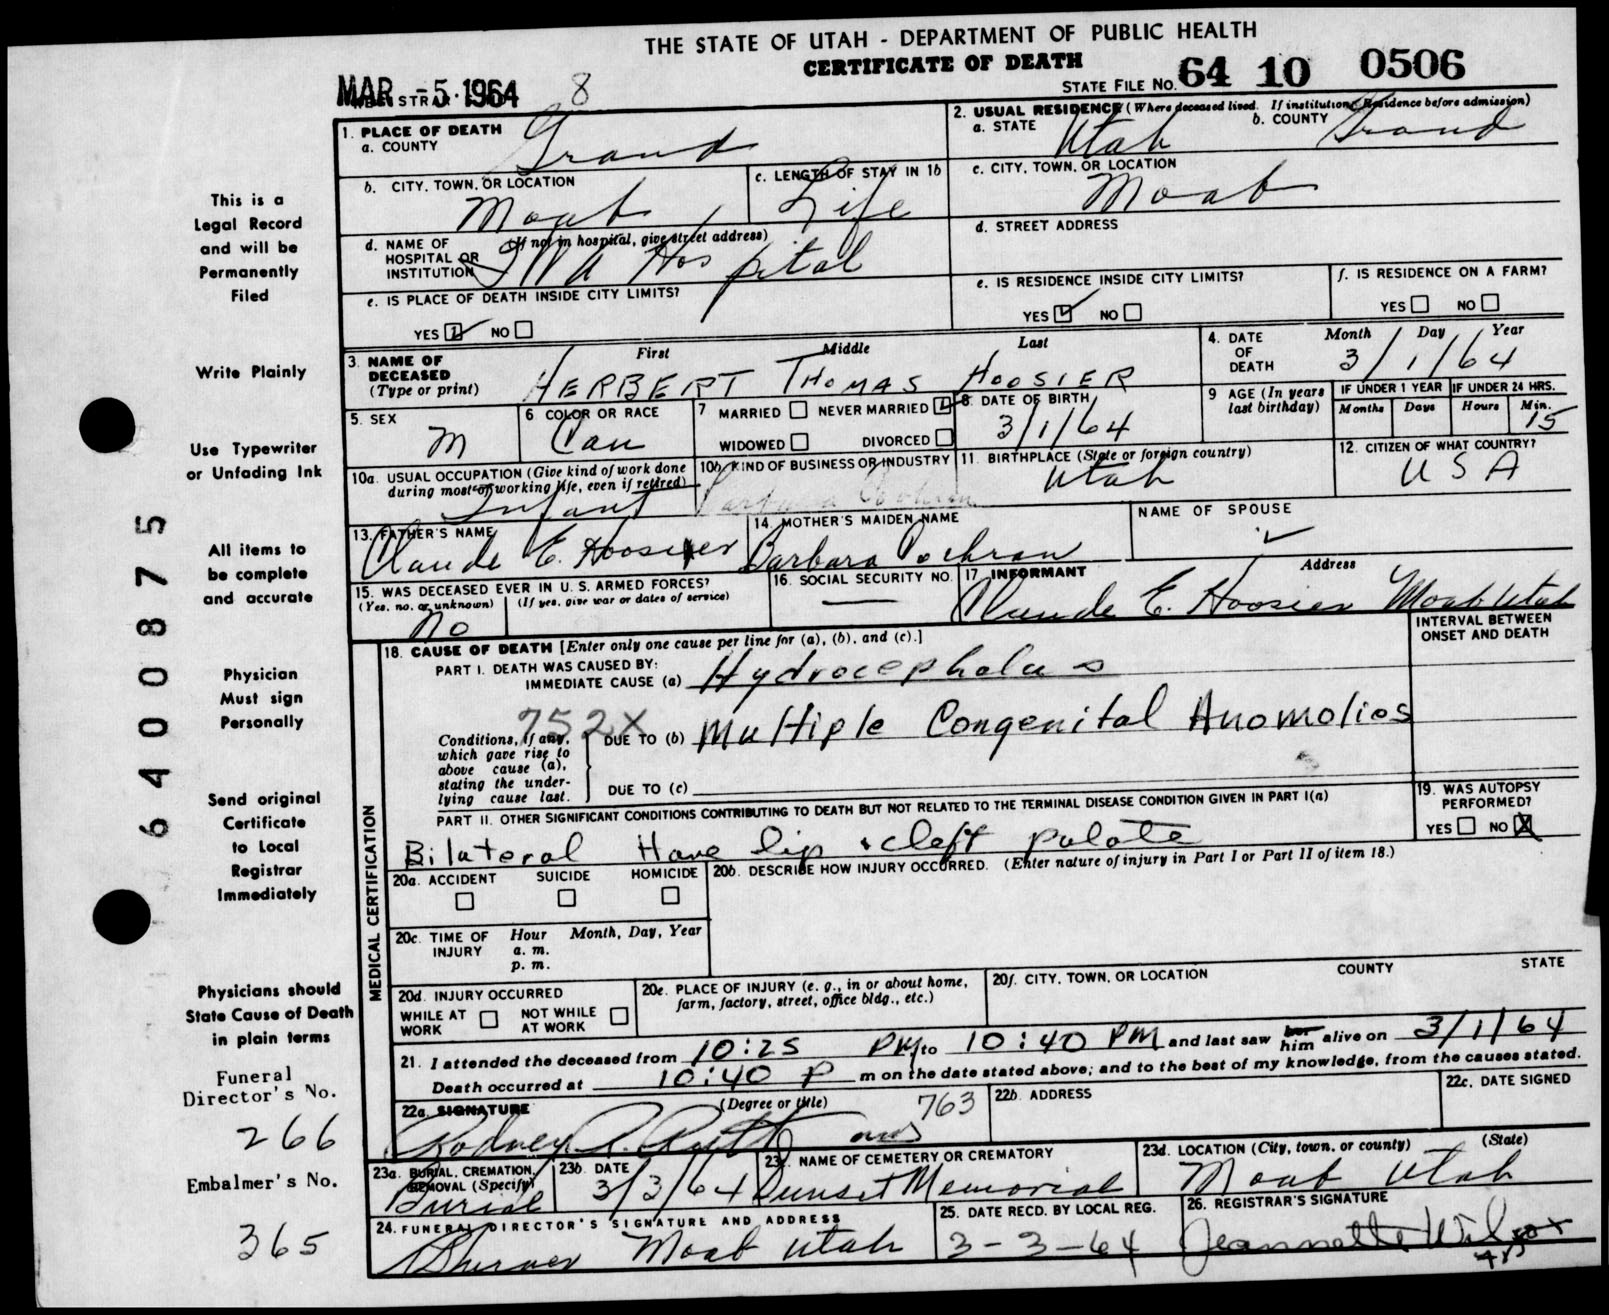 THE STATE OF UTAH - DEPARTMENT OF PUBLIC HEALTH
CERTIFICATE OF DEATH
MAR -5 1964 8
STATE FILE NO. 64 10 0506
1. PLACE OF DEATH
a. COUNTY Grand
2. USUAL RESIDENCE (Where deceased lived. If institution: Residence before admission)
a. STATE Utah b. COUNTY Grand
b. CITY, TOWN, OR LOCATION Moab
c. LENGTH OF STAY IN 1b Life
c. CITY, TOWN, OR LOCATION Moab
d. NAME OF HOSPITAL OR INSTITUTION (If not in hospital, give street address) Hospital
d. STREET ADDRESS
e. IS PLACE OF DEATH INSIDE CITY LIMITS?
YES NO
e. IS RESIDENCE INSIDE CITY LIMITS?
YES NO
f. IS RESIDENCE ON A FARM?
YES NO
3. NAME OF DECEASED (Type or print)
First Middle Last
HERBERT THOMAS HOOSIER
4. DATE OF DEATH
Month Day Year
3/1/64
5. SEX M
6 COLOR OR RACE Cau
7 MARRIED NEVER MARRIED
WIDOWED DIVORCED
8. DATE OF BIRTH 3/1/64
9 AGE (In years last birthday)
IF UNDER 1 YEAR IF UNDER 24 HRS.
Months Days Hours Min.
15
10a. USUAL OCCUPATION (Give kind of work done during most of working life, even if retired) Infant
10b. KIND OF BUSINESS OR INDUSTRY
11. BIRTHPLACE (State or foreign country) Utah
12. CITIZEN OF WHAT COUNTRY? USA
13. FATHER'S NAME Claude E. Hoosier
14. MOTHER'S MAIDEN NAME Barbara Cochran
NAME OF SPOUSE
15. WAS DECEASED EVER IN U. S. ARMED FORCES?
(Yes, no, or unknown) (If yes, give war or dates of service)
No
16. SOCIAL SECURITY NO. —
17 INFORMANT Address
Claude E. Hoosier Moab Utah
MEDICAL CERTIFICATION
18. CAUSE OF DEATH [Enter only one cause per line for (a), (b), and (c).]
INTERVAL BETWEEN ONSET AND DEATH
PART I. DEATH WAS CAUSED BY:
IMMEDIATE CAUSE (a) Hydrocephalus
752X
Conditions, if any, which gave rise to above cause (a), stating the underlying cause last.
DUE TO (b) Multiple Congenital Anomolies
DUE TO (c)
PART II. OTHER SIGNIFICANT CONDITIONS CONTRIBUTING TO DEATH BUT NOT RELATED TO THE TERMINAL DISEASE CONDITION GIVEN IN PART I(a)
Bilateral Hare lip & cleft palate
19. WAS AUTOPSY PERFORMED?
YES NO X
20a. ACCIDENT SUICIDE HOMICIDE
20b. DESCRIBE HOW INJURY OCCURRED. (Enter nature of injury in Part I or Part II of item 18.)
20c. TIME OF INJURY Hour Month, Day, Year
a. m.
p. m.
20d. INJURY OCCURRED
WHILE AT WORK NOT WHILE AT WORK
20e. PLACE OF INJURY (e. g., in or about home, farm, factory, street, office bldg., etc.)
20f. CITY, TOWN, OR LOCATION COUNTY STATE
21. I attended the deceased from 10:25 PM, to 10:40 PM and last saw her him alive on 3/1/64
Death occurred at 10:40 P m on the date stated above; and to the best of my knowledge, from the causes stated.
22a. SIGNATURE (Degree or title) 763
Rodney
22b. ADDRESS
22c. DATE SIGNED
23a. BURIAL, CREMATION, REMOVAL (Specify) Burial
23b. DATE 3/3/64
23c. NAME OF CEMETERY OR CREMATORY Sunset Memorial
23d. LOCATION (City, town, or county) (State)
Moab Utah
24. FUNERAL DIRECTOR'S SIGNATURE AND ADDRESS
Moab Utah
25. DATE RECD. BY LOCAL REG. 3-3-64
26. REGISTRAR'S SIGNATURE Jeannette Wilcox
This is a
Legal Record
and will be
Permanently
Filed
Write Plainly
Use Typewriter
or Unfading Ink
All items to
be complete
and accurate
Physician
Must sign
Personally
Send original
Certificate
to Local
Registrar
Immediately
Physicians should
State Cause of Death
in plain terms
Funeral
Director's No.
266
Embalmer's No.
365
6400875